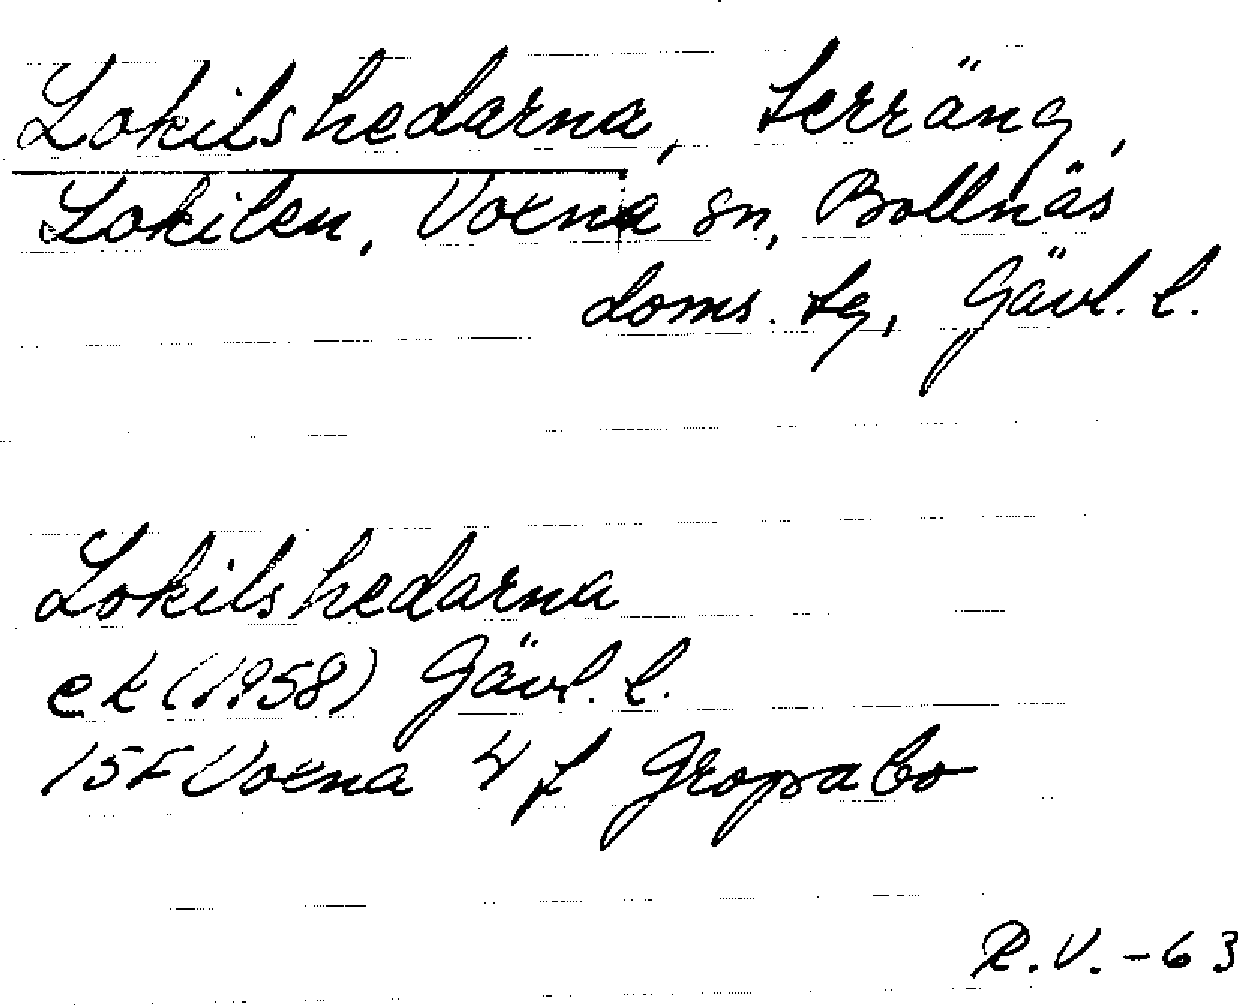 Lokilshedarna, terräng,
Lokilen, Voxna sn, Bollnäs
doms. tg, Gävl. l.
Lokilshedarna
ek (1958) Gävl. l.
15F Voxna 4 f Gropabo
R.V. -63